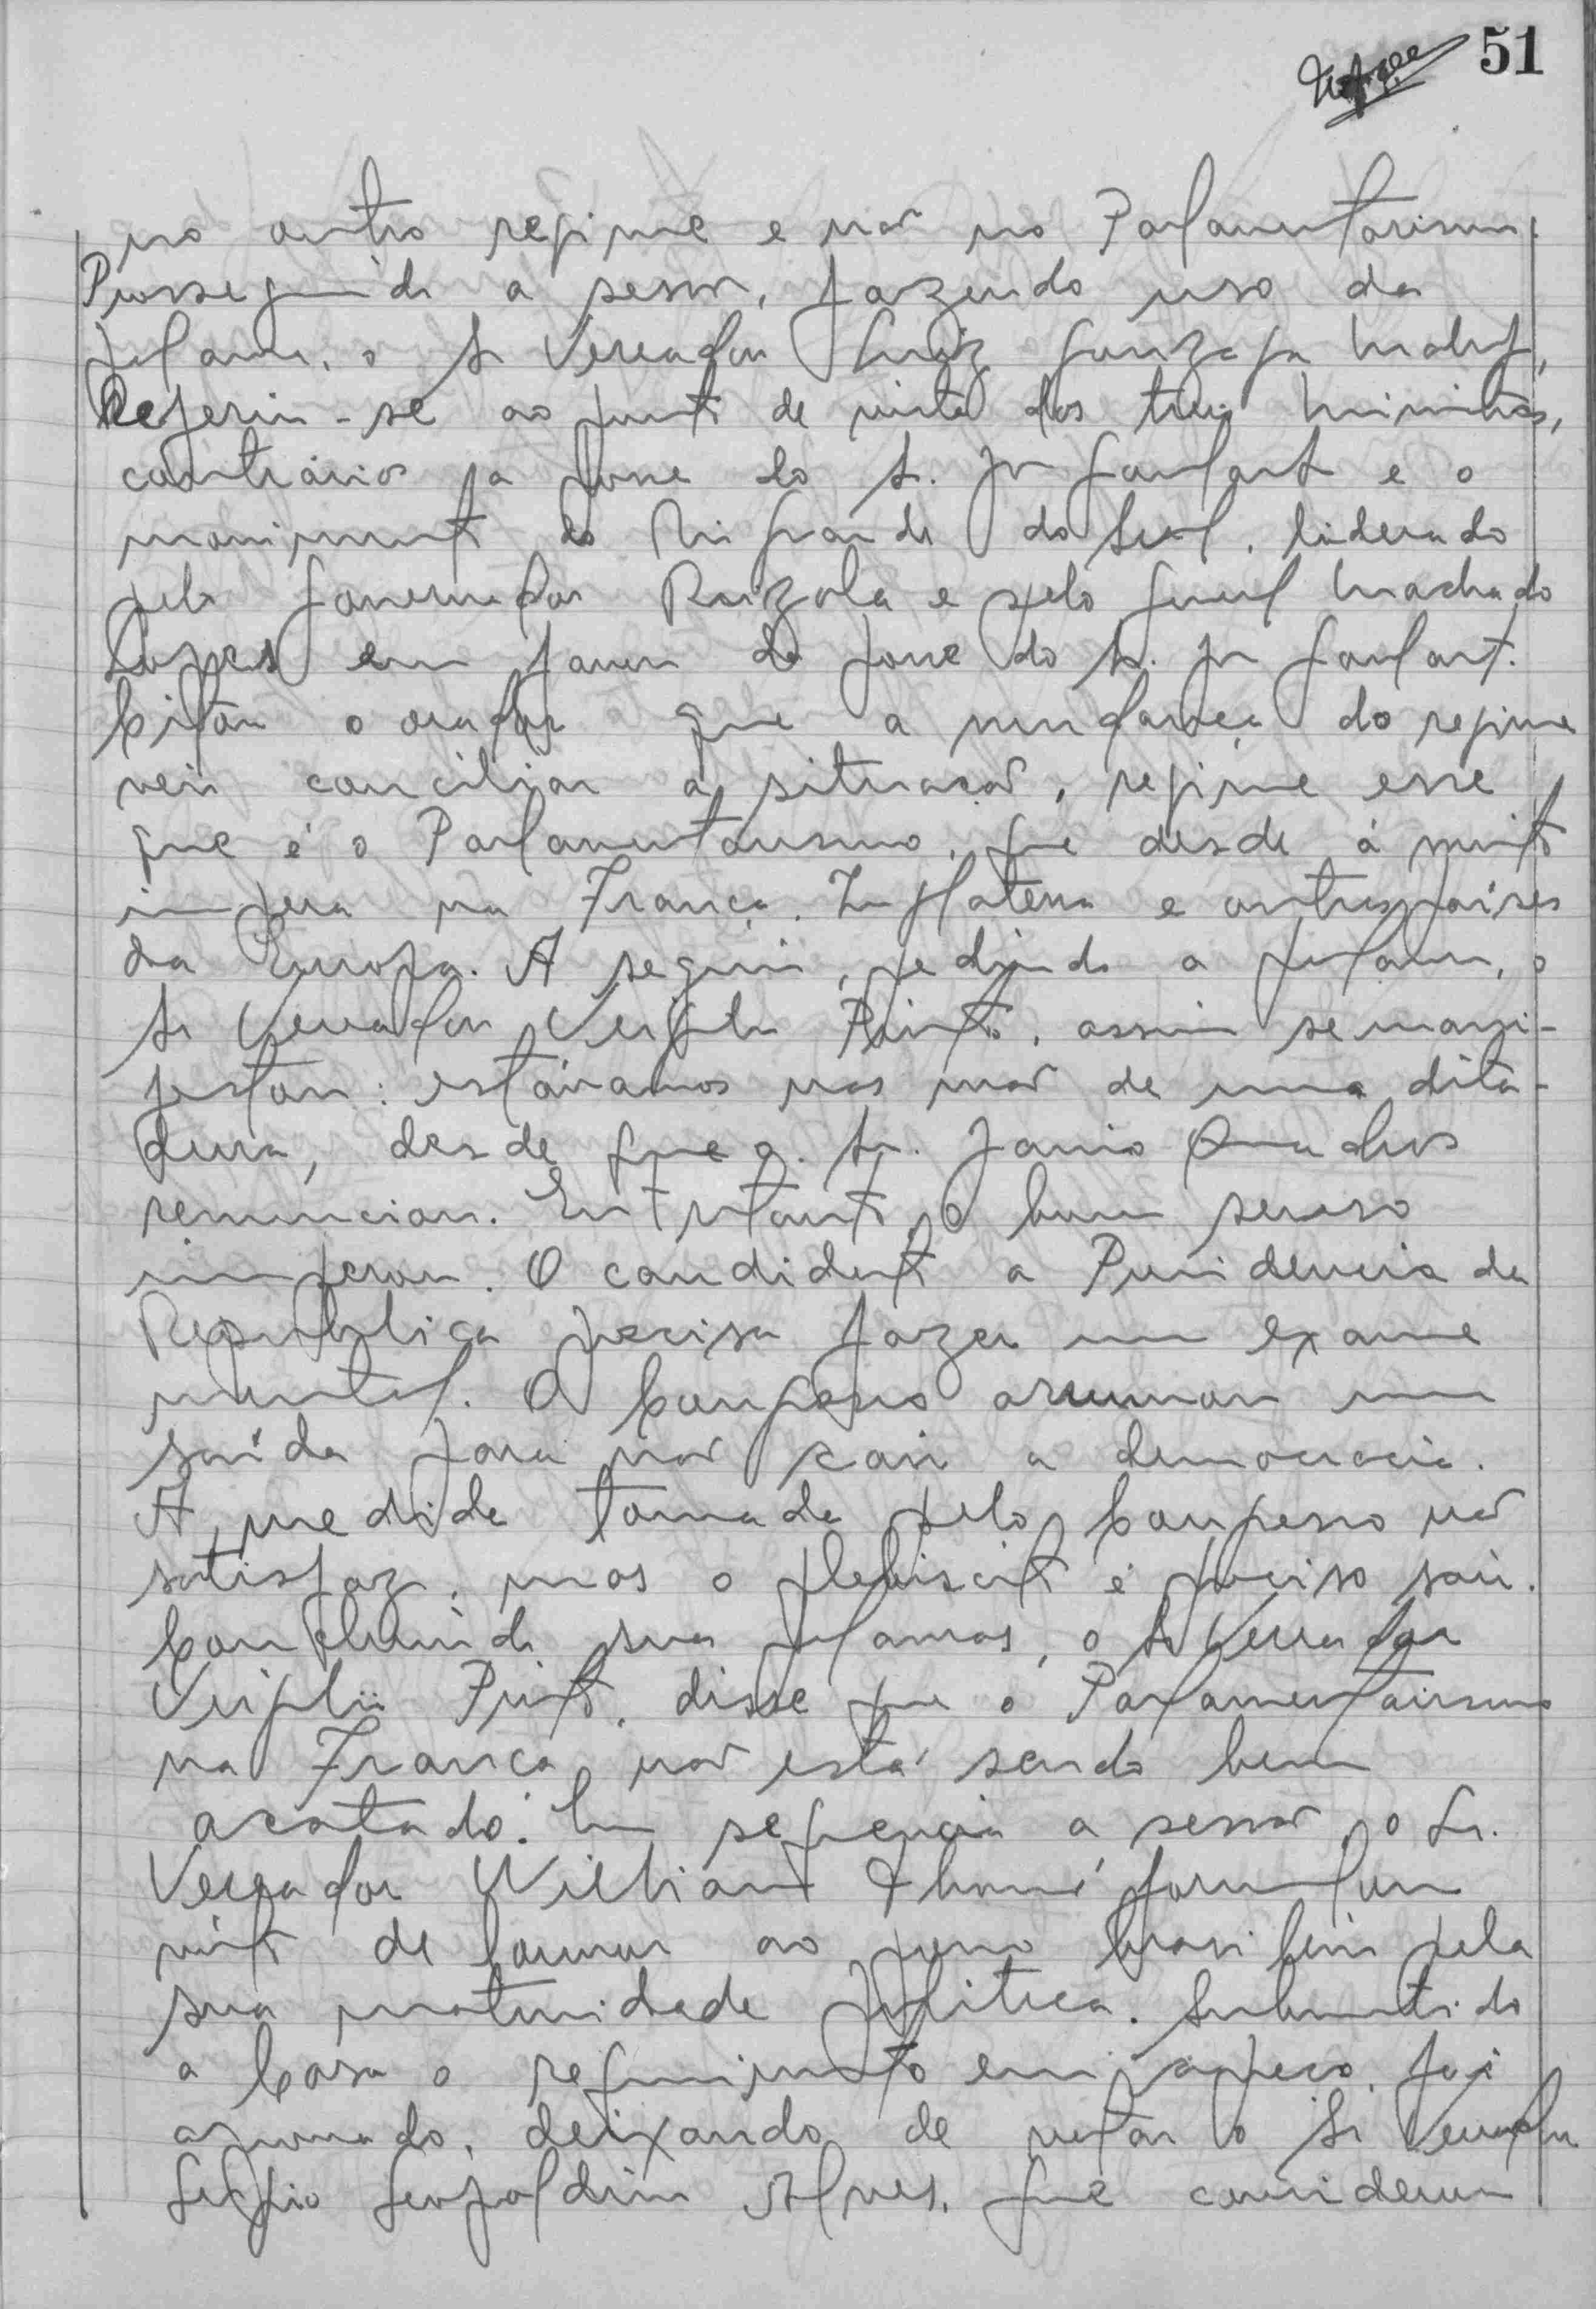 51
no outro regime e não no Parlamentarismo.
Prosseguindo a sessão, fazendo uso da
palavra, o Sr Vereador Luiz Gonzaga Maluf,
Referiu-se ao ponto de vista dos três Ministros,
contrários a posse do Sr. Jo Goulart e o
movimento do Rio Grande do Sul, liderado
pelo Governador Brizola e pelo General Machado
Lopes em favor da posse do Sr. Jo Goulart.
Citou o orador que a mudança do regime
veio conciliar a situação, regime esse
que é o Parlamentarismo, que desde á muito
impera na França, Inglaterra e outros paises
da Europa. A seguir, pedindo a palavra, o
Sr Vereador Virgilio Pinto, assim se mani-
festou: estávamos nas mãos de uma dita-
dura, desde que o Sr. Janio Quadros
renunciou. Entretanto, o bom senso
imperou. O candidato a Presidencia da
Republica precisa fazer um exame
mental. O Congresso arrumou uma
saída para não cair a democracia.
A medida tomada pelo Congresso não
satisfaz, mas o plebiscito é preciso sair.
Concluindo sua palavras, o Sr Vereador
Virgilio Pinto, disse que o Parlamentarismo
na França não está sendo bem
acatado. Em sequencia a sessão, o Sr.
Vereador Willian Thomé formulou
voto de louvor ao povo brasileiro pela
sua maturidade politica. Submetido
a Casa o requerimento em apreço, foi
aprovado, deixando de votar o Sr Vereador
Sergio Leopoldino Alves, que considerou